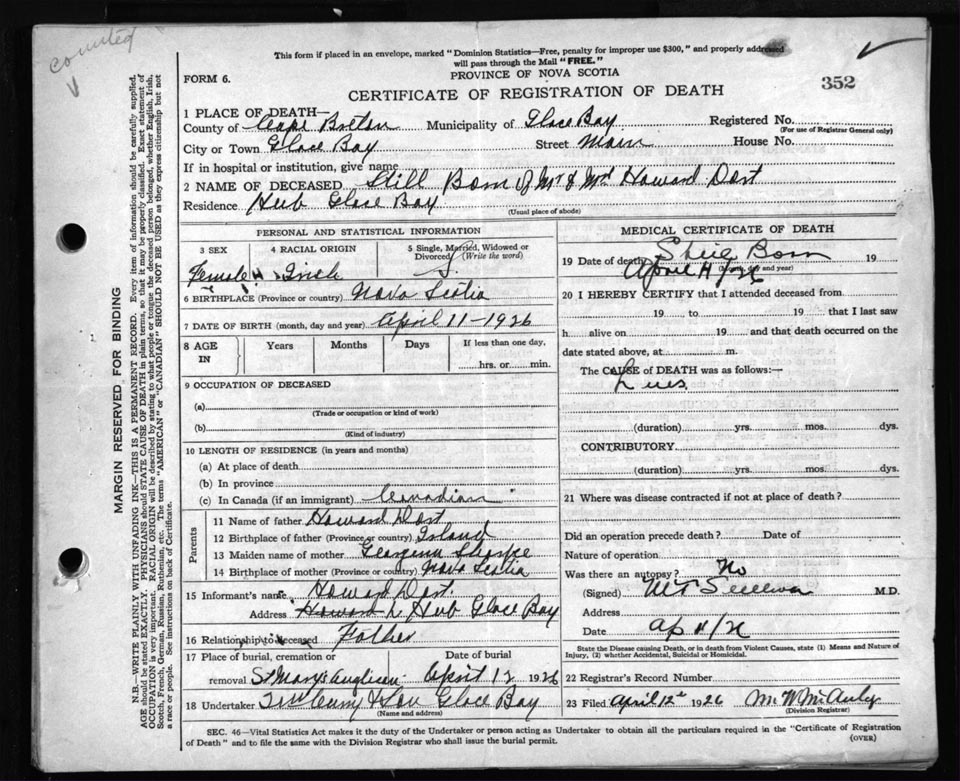 counted
This form if placed in an envelope, marked "Dominion Statistics—Free, penalty for improper use $300," and properly addressed
will pass through the Mail "FREE."
FORM 6.
PROVINCE OF NOVA SCOTIA
352
CERTIFICATE OF REGISTRATION OF DEATH
1 PLACE OF DEATH—
County of Cape Breton Municipality of Glace Bay Registered No.
(For use of Registrar General only)
City or Town Glace Bay Street Main House No.
If in hospital or institution, give name
2 NAME OF DECEASED Still Born of Mr & Mrs Howard Dost
Residence Hub Glace Bay
(Usual place of abode)
PERSONAL AND STATISTICAL INFORMATION
3 SEX 4 RACIAL ORIGIN 5 Single, Married, Widowed or Divorced (Write the word)
Female Irish S.
6 BIRTHPLACE (Province or country) Nova Scotia
7 DATE OF BIRTH (month, day and year) April 11-1926
8 AGE IN Years Months Days If less than one day, hrs. or min.
9 OCCUPATION OF DECEASED
(a)
(Trade or occupation or kind of work)
(b)
(Kind of industry)
10 LENGTH OF RESIDENCE (in years and months)
(a) At place of death
(b) In province
(c) In Canada (if an immigrant) Canadian
Parents
11 Name of father Howard Dost
12 Birthplace of father (Province or country) Island
13 Maiden name of mother Sharpe
14 Birthplace of mother (Province or country) Nova Scotia
15 Informant's name Howard Dost.
Address Hub Glace Bay
16 Relationship to deceased Father
17 Place of burial, cremation or removal St Mary's Anglican
Date of burial April 12 1926
18 Undertaker & Son Glace Bay
(Name and address)
MEDICAL CERTIFICATE OF DEATH
19 Date of death Still Born 19
April 11/26
(Month, day and year)
20 I HEREBY CERTIFY that I attended deceased from
19 to 19 that I last saw
h alive on 19 and that death occurred on
date stated above, at m.
The CAUSE of DEATH was as follows:—
Lues
(duration) yrs. mos. dys.
CONTRIBUTORY
(duration) yrs. mos. dys.
21 Where was disease contracted if not at place of death?
Did an operation precede death? Date of
Nature of operation
Was there an autopsy? No
(Signed) M.D.
Address
Date Ap 11/26
State the Disease causing Death, or in death from Violent Causes, state (1) Means and Nature of
Injury, (2) whether Accidental, Suicidal or Homicidal.
22 Registrar's Record Number
23 Filed April 12th 1926 M. W. McAuley
(Division Registrar)
SEC. 46—Vital Statistics Act makes it the duty of the Undertaker or person acting as Undertaker to obtain all the particulars required in the "Certificate of Registration
of Death" and to file the same with the Division Registrar who shall issue the burial permit.
(OVER)
MARGIN RESERVED FOR BINDING
N.B.—WRITE PLAINLY WITH UNFADING INK—THIS IS A PERMANENT RECORD. Every item of information should be carefully supplied.
AGE should be stated EXACTLY. PHYSICIANS should STATE CAUSE OF DEATH in plain terms, so that it may be properly classified. Exact statement of
OCCUPATION is very important. RACIAL ORIGIN will be described by stating to what people or tongue the deceased person belonged, whether English, Irish,
Scotch, French, German, Russian, Ruthenian, etc. The terms "AMERICAN" or "CANADIAN" SHOULD NOT BE USED as they express citizenship but not
a race or people. See instructions on back of Certificate.